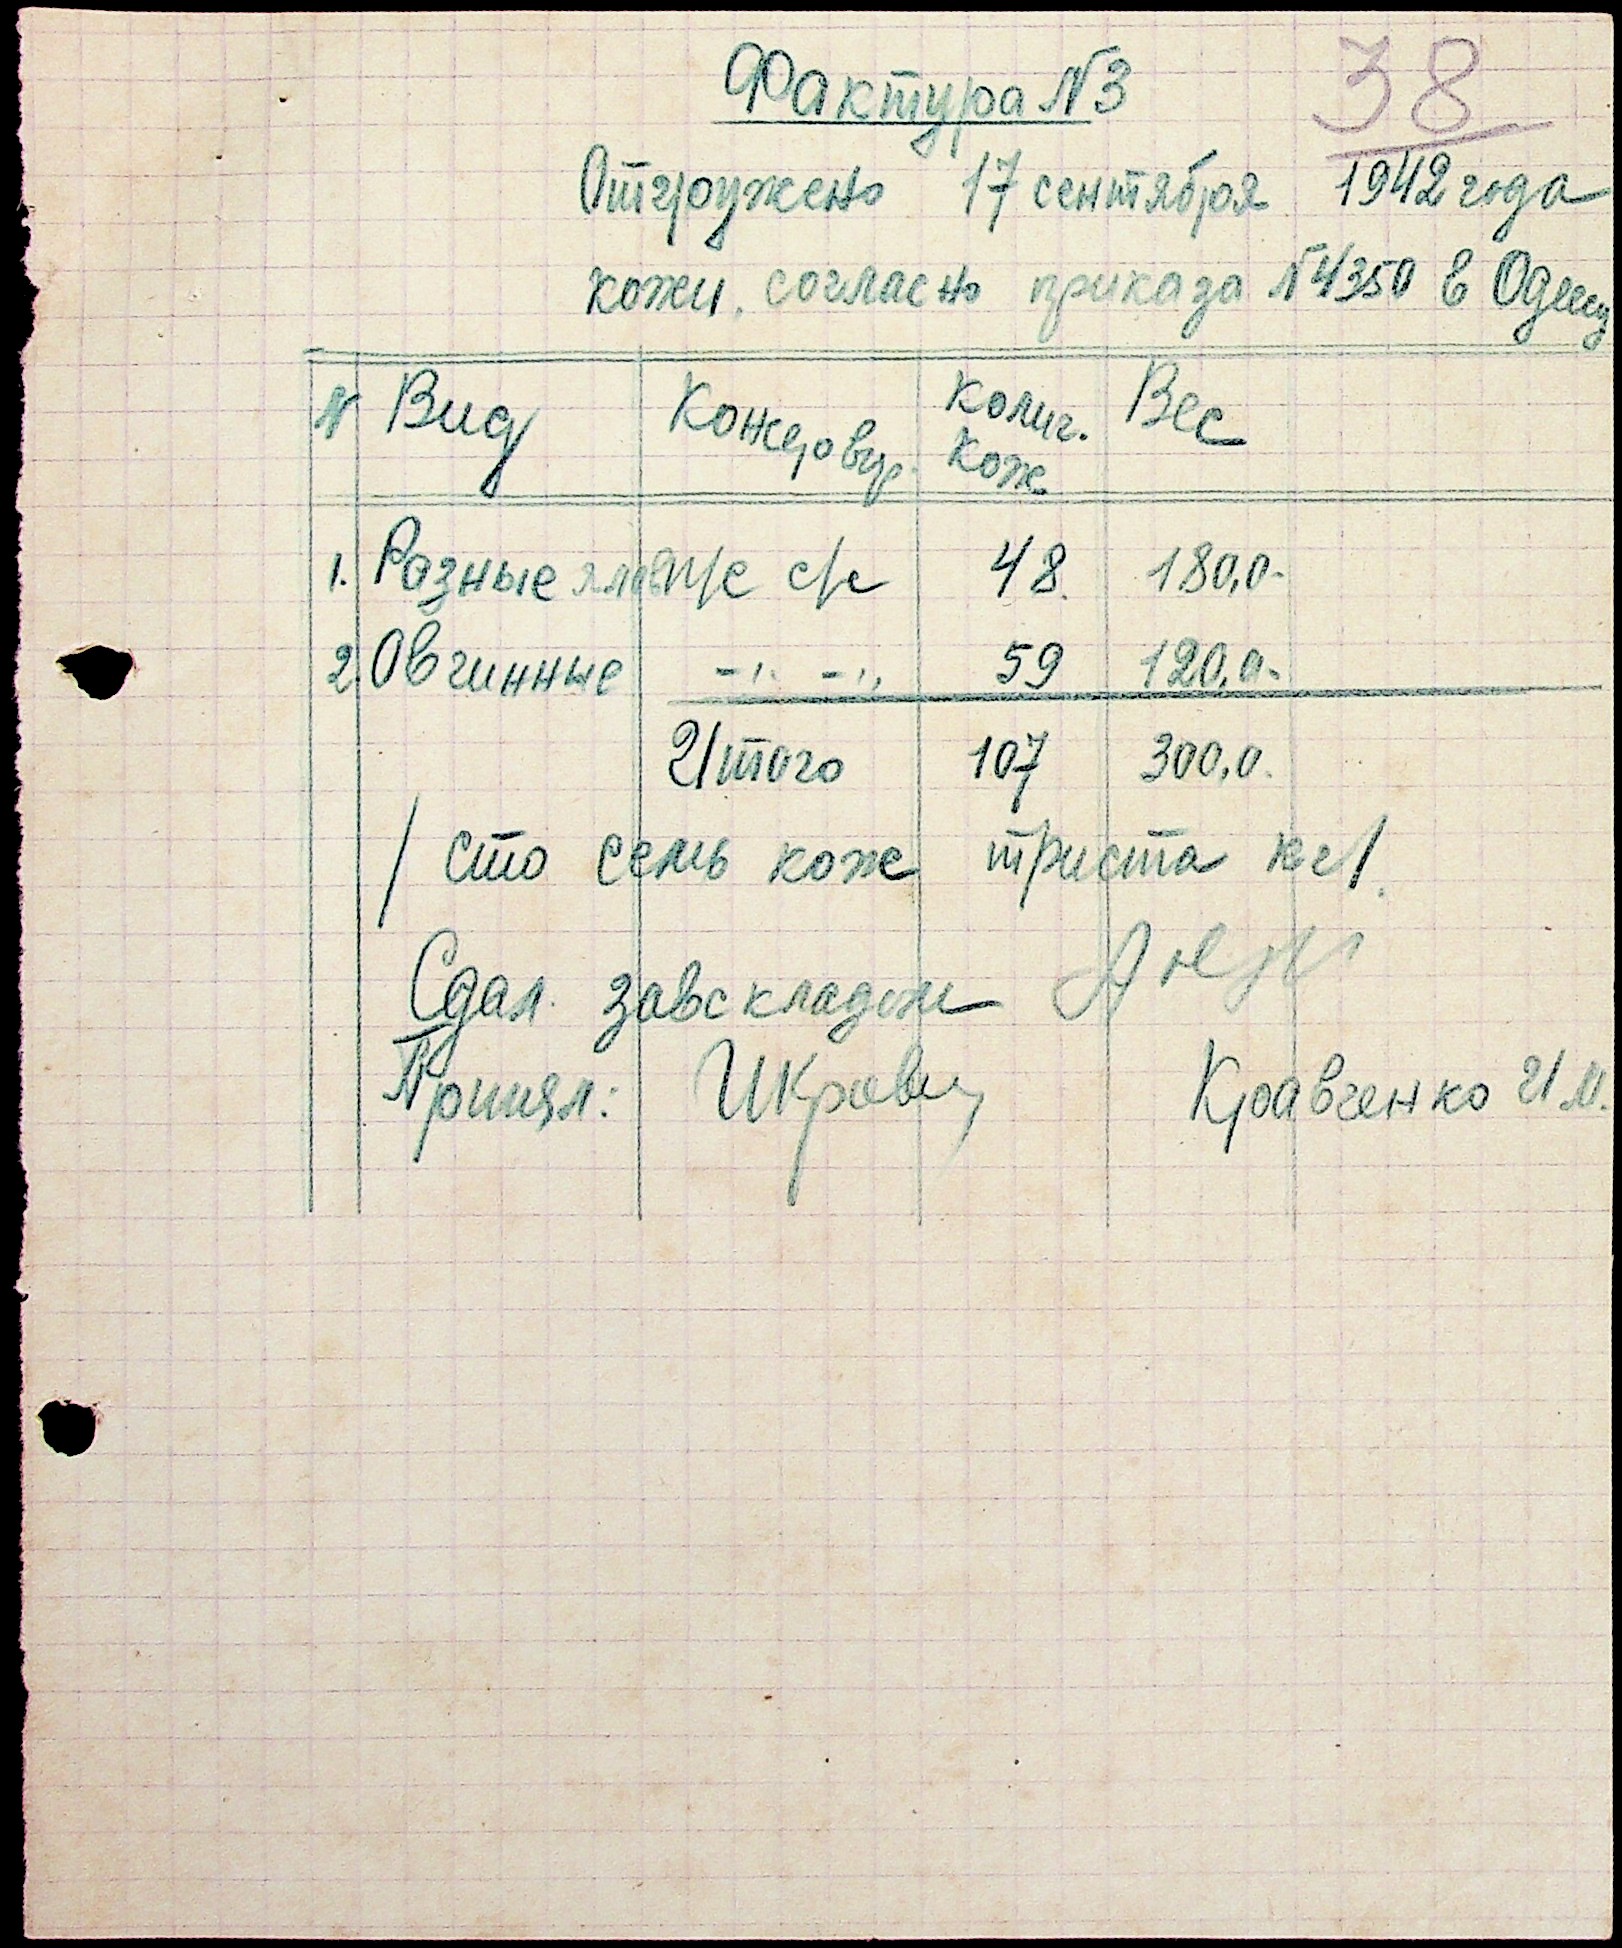 38
Фактура N3
Отгружено 17 сентября 1942 года
кожи, согласно приказа N 4350 в Одессу
N Вид Кожсровья Колич. Кож Вес
1. Разные с/с 48 180,0-
2. Овчинные -,,- -,,- 59 120,0-
Итого 107 300,0.
/ сто семь кож триста кг/.
Сдал завскладом
Принял: Кравченко И М.